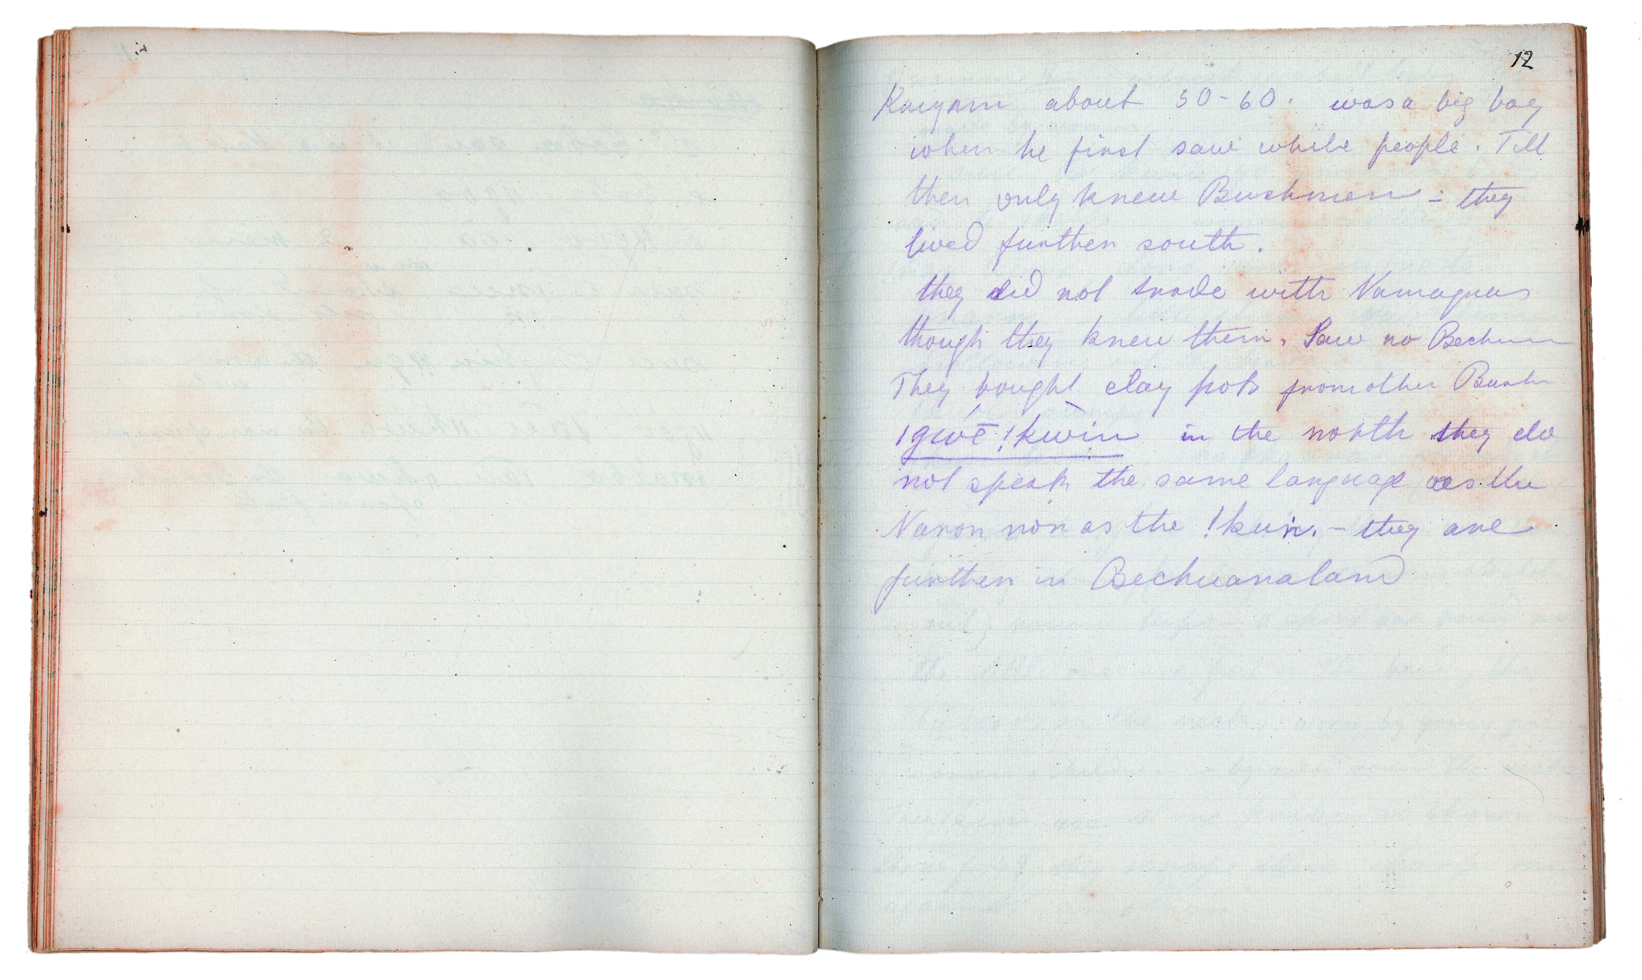 12
Kaiyam about 50-60. was a big boy
when he first saw white people. Till
then only knew Bushmen - they
lived further south.
they did not trade with Namaquas
though they knew them. Saw no Bechuan
They bought clay pots from other Bushm
in the north they do
not speak the same language as the
Naron nor as the !kuṅ. - they are
further in Bechuanaland